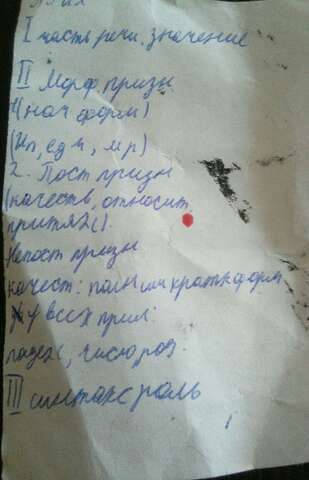 I часть речи. значение
II Морф. призн.
1(нач форм)
(Ип, ед ч, м р)
2. Пост призн
(качеств, относит,
притяж).
Непост призн
качест: полн или кратк форм
у всех прил:
падеж, число, род.
III синтакс роль